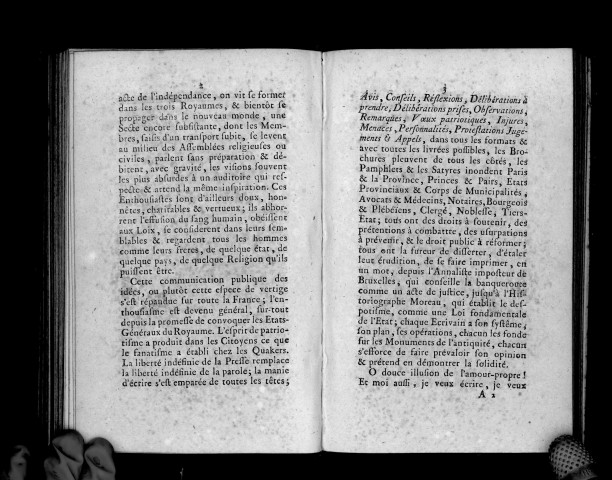 2
acte de l'indépendance, on vit se former
dans les trois Royaumes, & bientôt se
propager dans le nouveau monde, une
Secte encore subsistante, dont les Mem-
bres, saisis d'un transport subit, se levent
au milieu des Assemblées religieuses ou
civiles, parlent sans préparation & dé-
bitent, avec gravité, les visions souvent
les plus absurdes à un auditoire qui res-
pecte & attend la même inspiration. Ces
Enthousiastes sont d'ailleurs doux, hon-
nêtes, charitables & vertueux; ils abhor-
rent l'effusion du sang humain, obéissent
aux Loix, se considerent dans leurs sem-
blables & regardent tous les hommes
comme leurs freres, de quelque état, de
quelque pays, de quelque Religion qu'ils
puissent être.
Cette communication publique des
idées, ou plutôt cette espece de vertige
s'est répandue sur toute la France; l'en-
thousiasme est devenu général, sur-tout
depuis la promesse de convoquer les Etats-
Généraux du Royaume. L'esprit de patrio-
tisme a produit dans les Citoyens ce que
le fanatisme a établi chez les Quakers.
La liberté indéfinie de la Presse remplace
la liberté indéfinie de la parole; la manie
d'écrire s'est emparée de toutes les têtes;
3
Avis, Conseils, Réflexions, Délibérations à
prendre, Délibérations prises, Observations,
Remarques, Vœux patriotiques, Injures,
Menaces, Personnalités, Protestations Juge-
ments & Appels, dans tous les formats &
avec toutes les livrées possibles, les Bro-
chures pleuvent de tous les côtés, les
Pamphlets & les Satyres inondent Paris
& la Province, Princes & Pairs, Etats
Provinciaux & Corps de Municipalités,
Avocats & Médecins, Notaires, Bourgeois
& Plébéiens, Clergé, Noblesse, Tiers-
Etat; tous ont des droits à soutenir, des
prétentions à combattre, des usurpations
à prévenir, & le droit public à réformer;
tous ont la fureur de disserter, d'étaler
leur érudition, de se faire imprimer, en
un mot, depuis l'Annaliste imposteur de
Bruxelles, qui conseille la banqueroute
comme un acte de justice, jusqu'à l'His-
toriographe Moreau, qui établit le des-
potisme, comme une Loi fondamentale
de l'Etat; chaque Ecrivain a son système,
son plan, ses opérations, chacun les fonde
sur les Monuments de l'antiquité, chacun
s'efforce de faire prévaloir son opinion
& prétend en démontrer la solidité.
O douce illusion de l'amour-propre!
Et moi aussi, je veux écrire, je veux
A 2